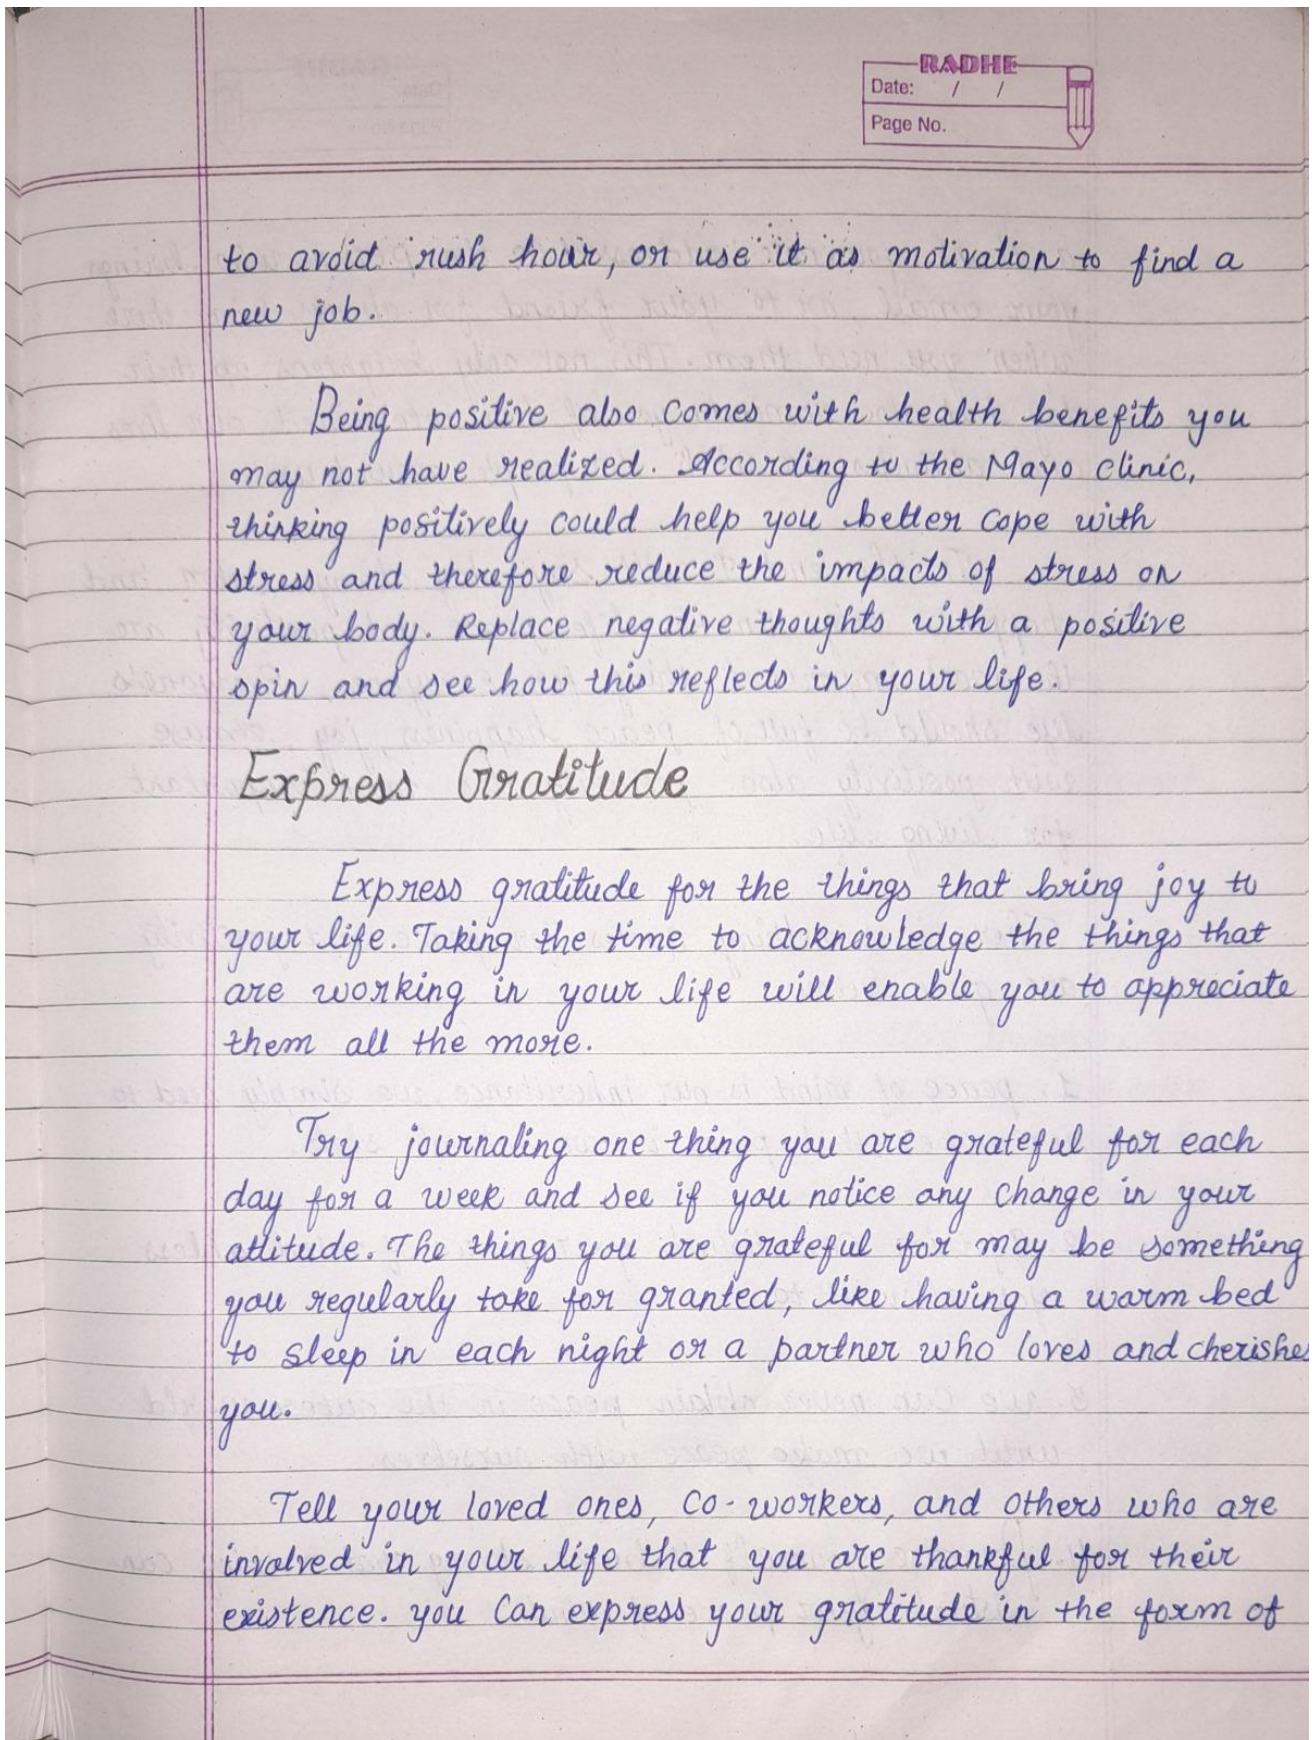 RADHE
Date: / /
Page No.
to avoid rush hour, or use it as motivation to find a
new job.
Being positive also comes with health benefits you
may not have realized. According to the Mayo clinic,
thinking positively could help you better cope with
stress and therefore reduce the impacts of stress on
your body. Replace negative thoughts with a positive
spin and see how this reflects in your life.
Express Gratitude
Express gratitude for the things that bring joy to
your life. Taking the time to acknowledge the things that
are working in your life will enable you to appreciate
them all the more.
Try journaling one thing you are grateful for each
day for a week and see if you notice any change in your
attitude. The things you are grateful for may be something
you regularly take for granted, like having a warm bed
to sleep in each night or a partner who loves and cherishes
you.
Tell your loved ones, co-workers, and others who are
involved in your life that you are thankful for their
existence. you can express your gratitude in the form of